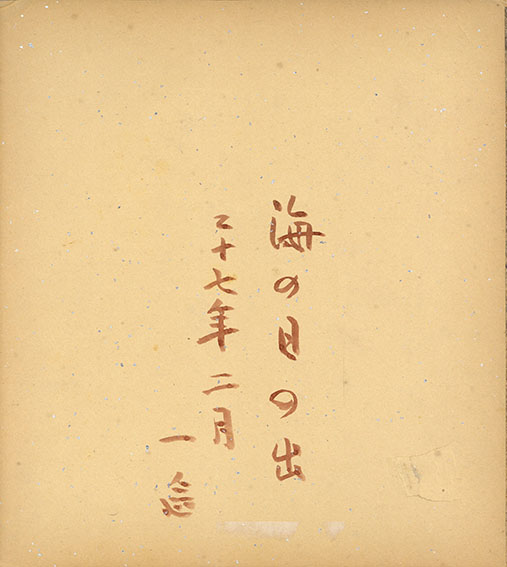 海の日の出
二十七年二月
一